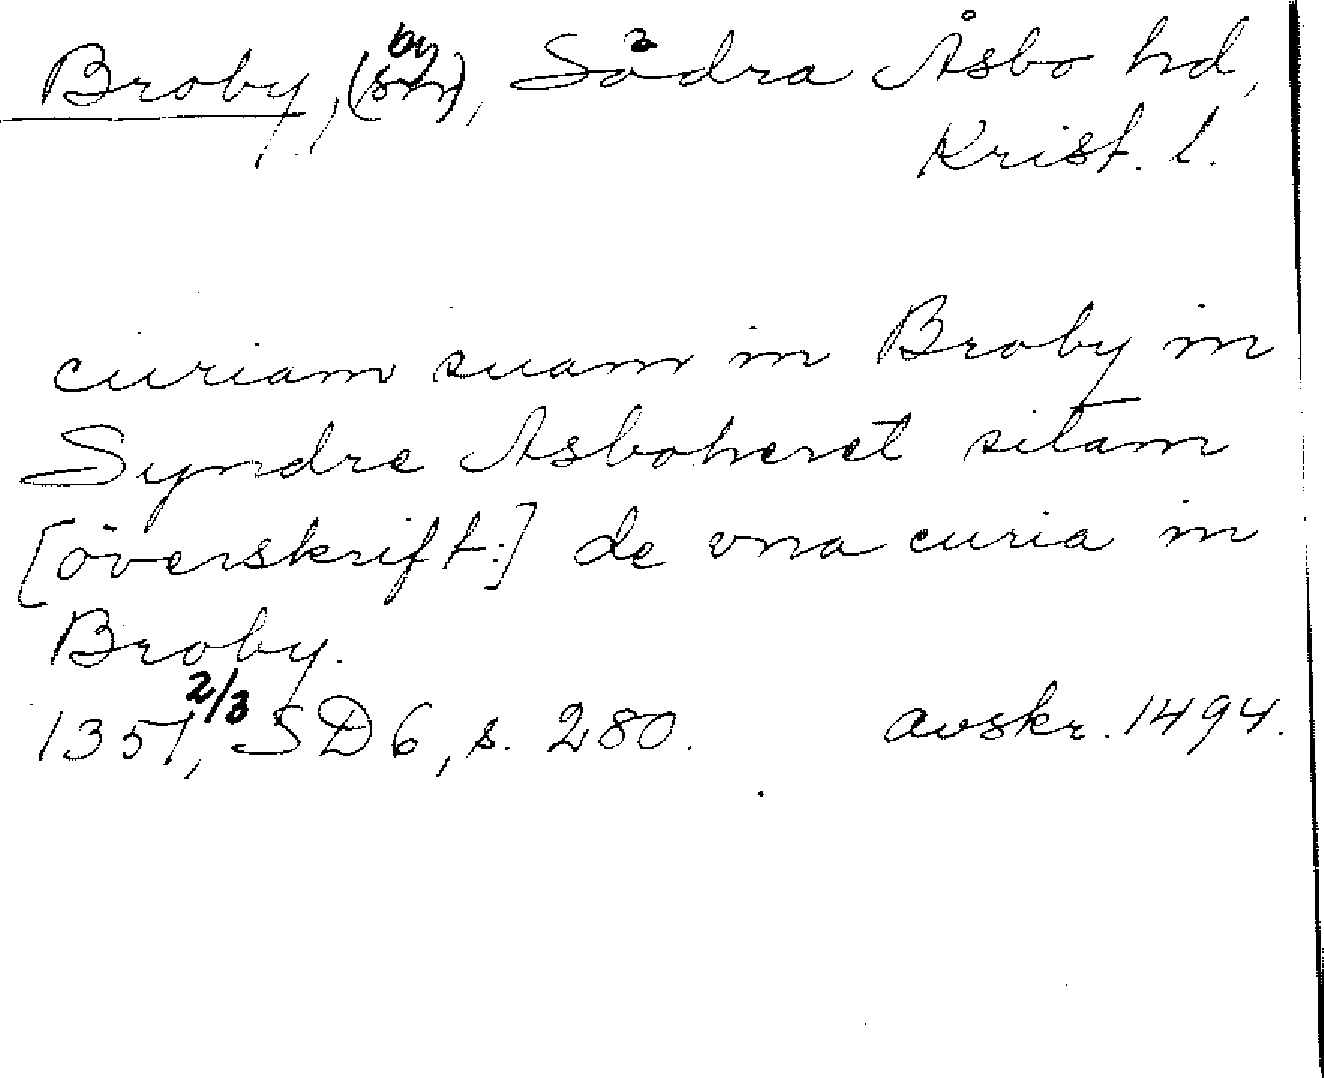 Broby, (by), Södra Åsbo hd,
Krist. l.
curiam suam in Broby in
Syndre Asboheret sitam
[överskift:] de vna curia in
Broby.
1351 2/3, SD 6, s. 280. avskr. 1494.